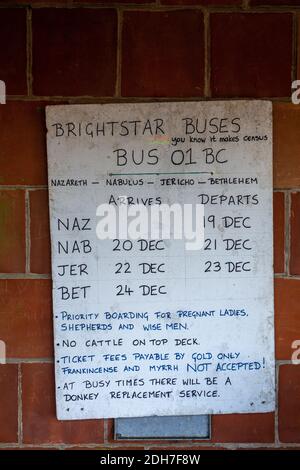 BRIGHTSTAR BUSES
you know it makes census
BUS 01 BC
NAZARETH — NABULUS — JERICHO — BETHLEHEM
ARRIVES DEPARTS
NAZ 19 DEC
NAB 20 DEC 21 DEC
JER 22 DEC 23 DEC
BET 24 DEC
• PRIORITY BOARDING FOR PREGNANT LADIES,
SHEPHERDS AND WISE MEN.
• NO CATTLE ON TOP DECK.
• TICKET FEES PAYABLE BY GOLD ONLY
FRANKINCENSE AND MYRRH NOT ACCEPTED!
• AT BUSY TIMES THERE WILL BE A
DONKEY REPLACEMENT SERVICE.
alamy
Image ID: 2DH7F8W
www.alamy.com